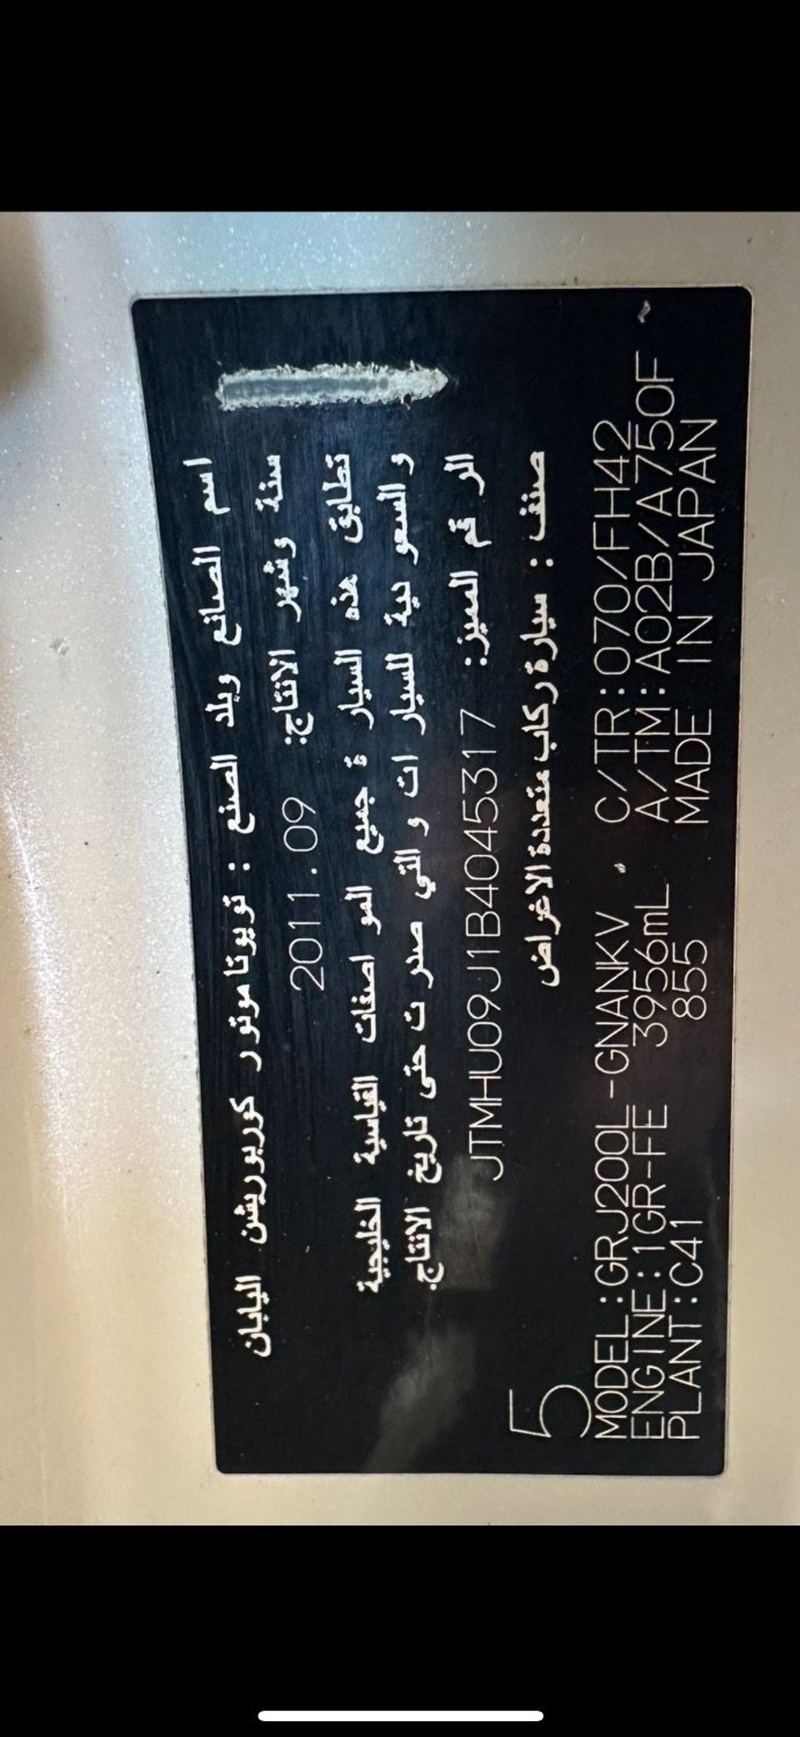 اسم الصانع وبلد الصنع : تويوتا موتور كوربوريشن اليابان
سنة وشهر الانتاج: 2011.09
تطابق هذه السيارة جميع المواصفات القياسية الخليجية
والسعودية للسيارات والتي صدرت حتى تاريخ الانتاج.
الرقم المميز: JTMHU09J1B4045317
صنف : سيارة ركاب متعددة الاغراض
5
MODEL:GRJ200L-GNANKV C/TR:070/FH42
ENGINE:1GR-FE 3956mL A/TM:A02B/A750F
PLANT:C41 855 MADE IN JAPAN